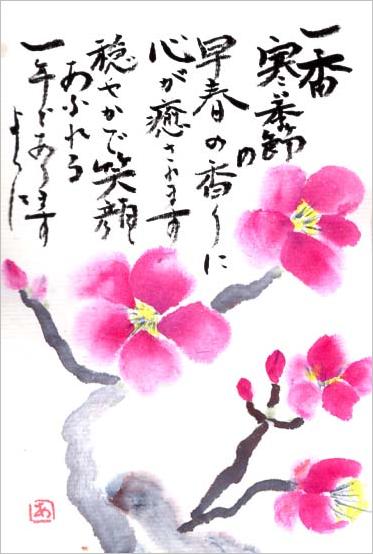 一番
寒い季節
の
早春の香りに
心が癒されます
穏やかで笑顔
あふれる
一年でありますように
あ